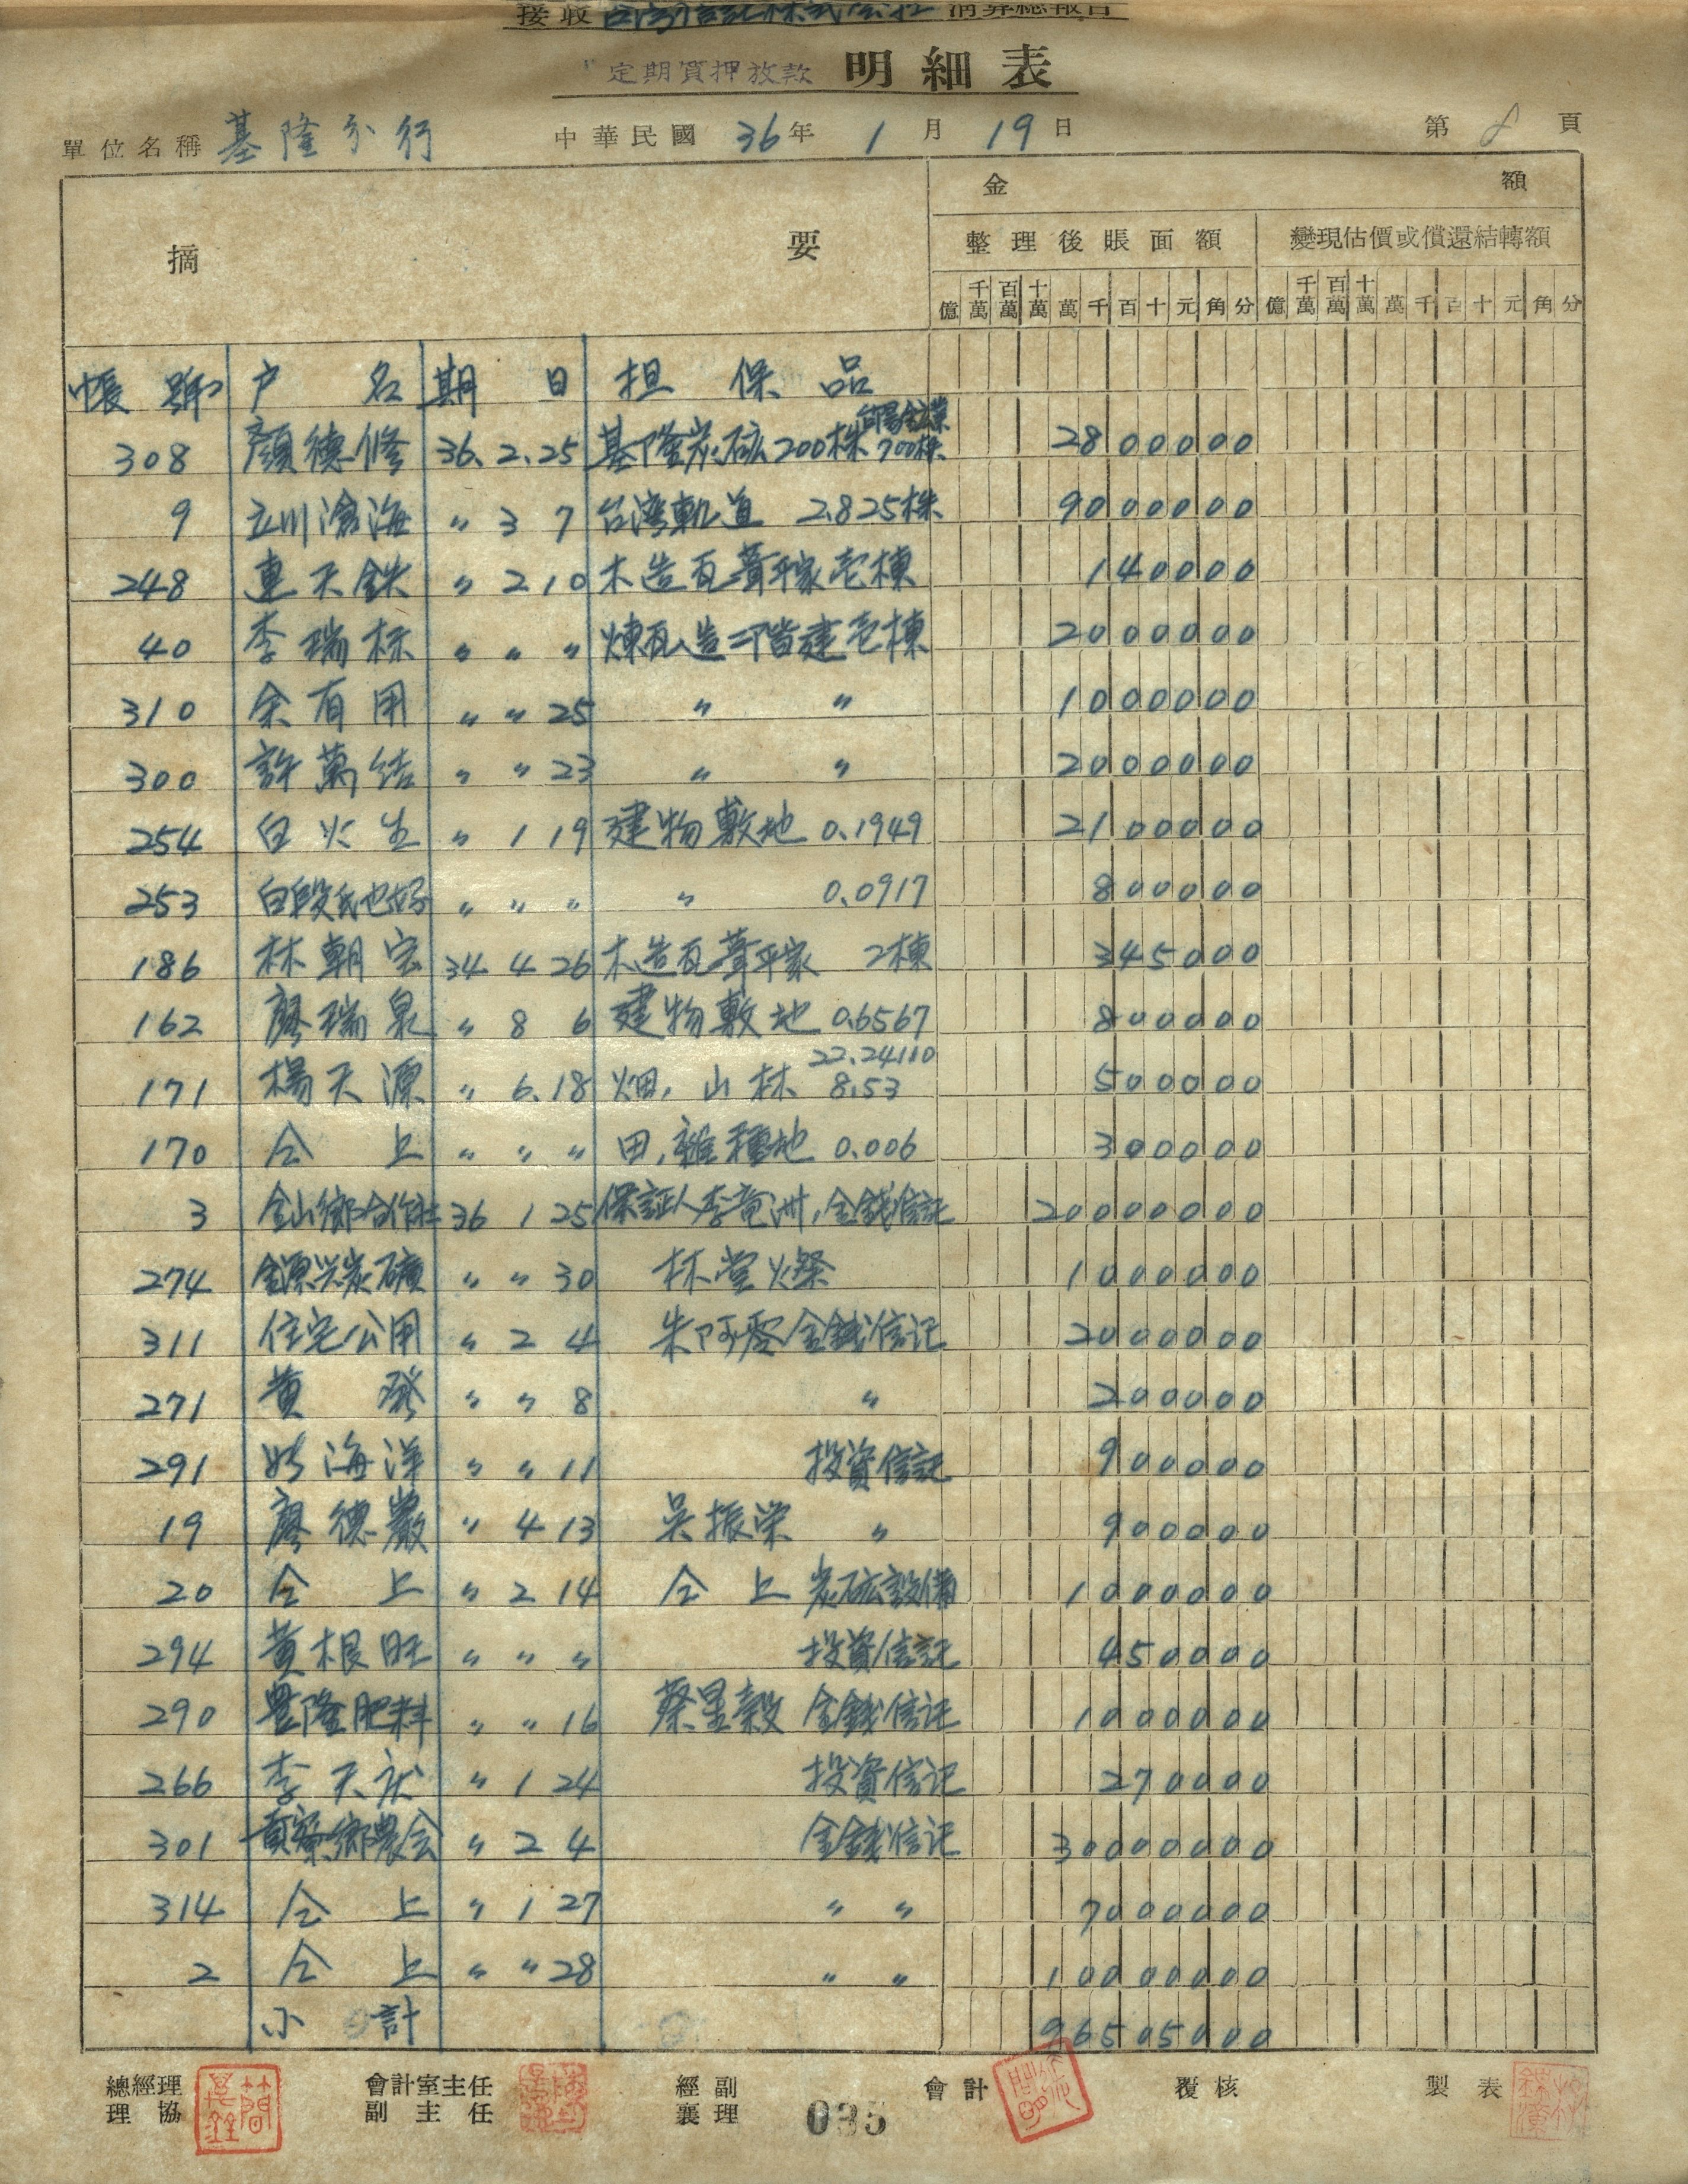 接收台灣信託株式会社清算總報告
定期質押放款 明細表
單位名稱 基隆分行 中華民國 36年 1月 19日 第 8 頁
摘要 金額
整理後賬面額 變現估價或償還結轉額
億 千萬 百萬 十萬 萬 千 百 十 元 角 分 億 千萬 百萬 十萬 萬 千 百 十 元 角 分
帳號 户名 期日 担保品
308 顏德修 36.2.25 基隆炭砿200株 台陽鉱業700株 2800000
9 立川滄海 〃 3 7 台湾軌道 2.825株 9000000
248 連天鉄 〃 2 10 木造瓦葺平家壱棟 140000
40 李瑞标 〃 〃 〃 煉瓦造二階建壱棟 2000000
310 余有用 〃 〃 25 〃 〃 1000000
300 許萬结 〃 〃 23 〃 〃 2000000
254 白火生 〃 1 19 建物敷地 0.1949 2100000
253 白段氏也好 〃 〃 〃 〃 0.0917 800000
186 林朝宏 34 4 26 木造瓦葺平家 2棟 345000
162 廖瑞泉 〃 8 6 建物敷地 0.6567 800000
171 楊天源 〃 6.18 畑, 山林 22.24110 8.53 500000
170 仝上 〃 〃 〃 田,雜種地 0.006 300000
3 金山鄉合作社 36 1 25 保証人李竜洲,金錢信託 20000000
274 金源兴炭礦 〃 〃 30 林堂燦 1000000
311 住宅公用 〃 2 4 朱阿 金錢信记 2000000
271 黄發 〃 〃 8 〃 200000
291 海洋 〃 〃 11 投資信託 900000
19 廖德巖 〃 4 13 吳振栄 〃 900000
20 仝上 〃 2 14 仝上 炭砿設備 1000000
294 黄根旺 〃 〃 〃 投資信託 450000
290 豊隆肥料 〃 〃 16 蔡星穀 金錢信记 1000000
266 李天 〃 1 24 投資信记 270000
301 貢寮鄉農会 〃 2 4 金錢信记 30000000
314 仝上 〃 1 27 〃 〃 7000000
2 仝上 〃 〃 28 〃 〃 10000000
小計 96505000
總經理 協理 會計室主任 副主任 經副襄理 會計 覆核 製表
035